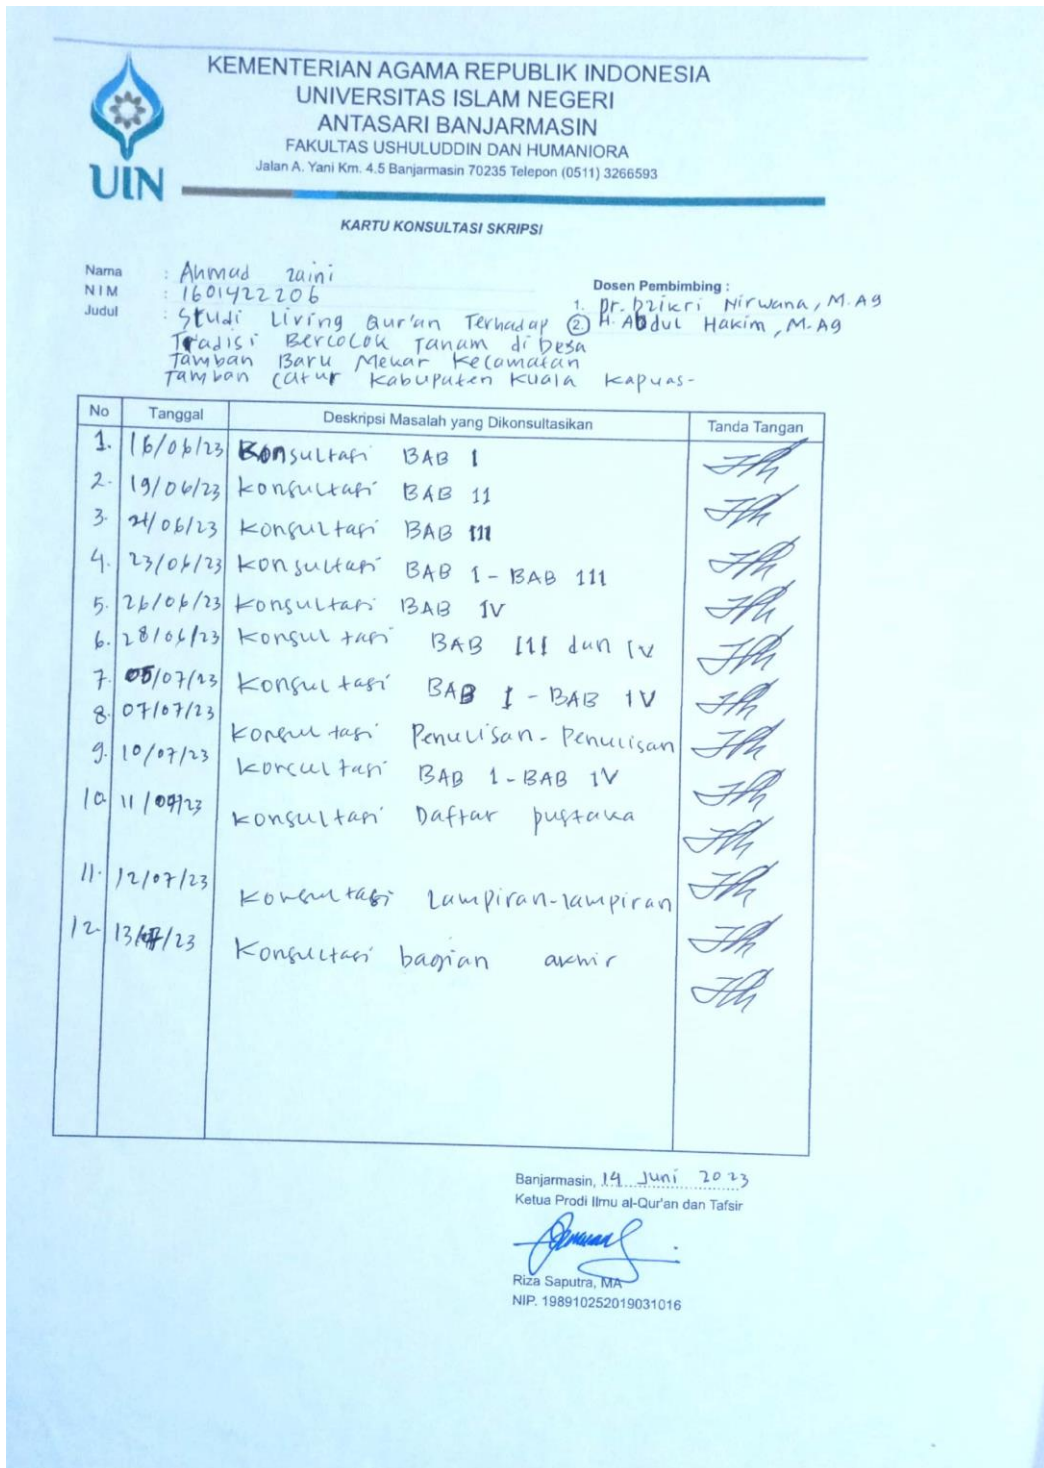 KEMENTERIAN AGAMA REPUBLIK INDONESIA
UNIVERSITAS ISLAM NEGERI
ANTASARI BANJARMASIN
FAKULTAS USHULUDDIN DAN HUMANIORA
Jalan A. Yani Km. 4.5 Banjarmasin 70235 Telepon (0511) 3266593
UIN
KARTU KONSULTASI SKRIPSI
Nama : Ahmad zaini
NIM : 1601422206
Judul : Studi Living Qur'an Terhadap
Tradisi Bercocok Tanam di Desa
Tamban Baru Mekar Kecamatan
Tamban Catur Kabupaten Kuala Kapuas-
Dosen Pembimbing :
1. Dr. Dzikri Nirwana, M.Ag
2. H. Abdul Hakim, M.Ag
No Tanggal Deskripsi Masalah yang Dikonsultasikan Tanda Tangan
1. 16/06/23 Konsultasi BAB I
2. 19/06/23 Konsultasi BAB II
3. 21/06/23 Konsultasi BAB III
4. 23/06/23 Konsultasi BAB I - BAB III
5. 26/06/23 Konsultasi BAB IV
6. 28/06/23 Konsultasi BAB III dan IV
7. 05/07/23 Konsultasi BAB I - BAB IV
8. 07/07/23 Konsultasi Penulisan-Penulisan
9. 10/07/23 Konsultasi BAB I - BAB IV
10. 11/07/23 Konsultasi Daftar pustaka
11. 12/07/23 Konsultasi Lampiran-lampiran
12. 13/07/23 Konsultasi bagian akhir
Banjarmasin, 14 Juni 2023
Ketua Prodi Ilmu al-Qur'an dan Tafsir
Riza Saputra, MA
NIP. 198910252019031016